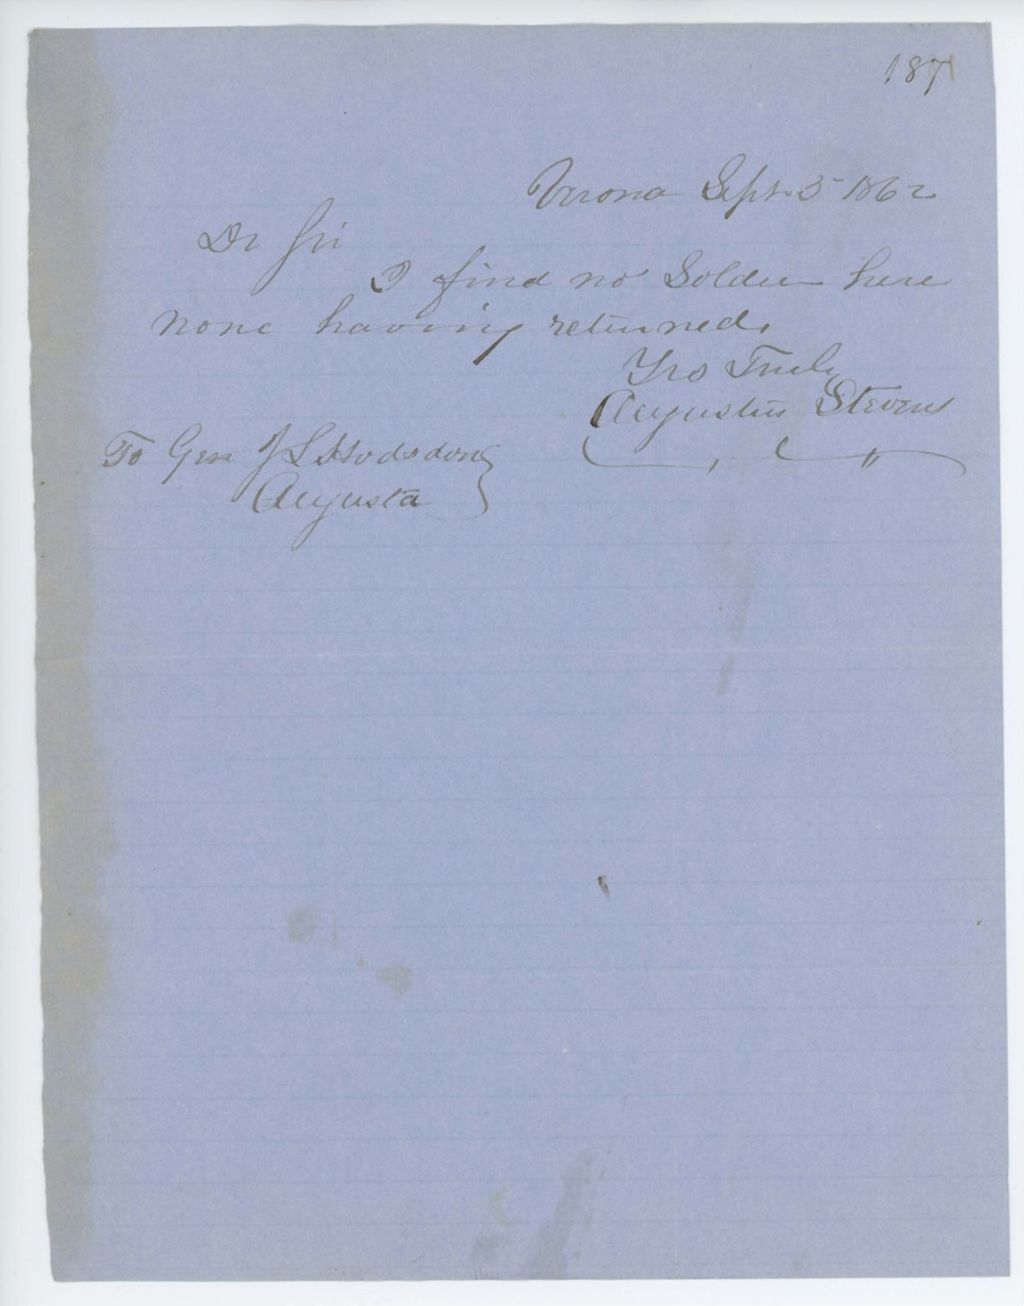 187
Verona Sept 5 1862
Dr Sir
I find no Soldier here
none having returned.
Yrs Truly
Augustus Stevens
To Gen J L Hodsdon
Augusta